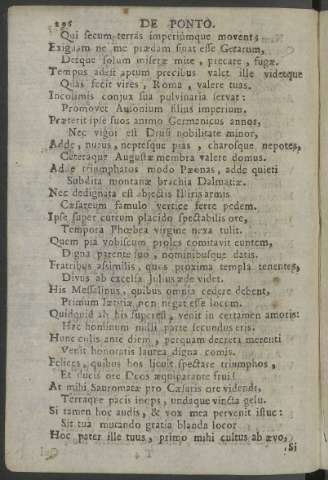 296 DE PONTO.
Qui secum terras imperiumque movent;
Exiguam ne me prædam sinat esse Getarum,
Detque solum miseræ mite, precare, fugæ.
Tempus adest aptum precibus valet ille videtque
Quas fecit vires, Roma, valere tuas.
Incolumis conjux sua pulvinaria servat:
Promovet Ausonium filius imperium.
Præterit ipse suos animo Germanicus annos,
Nec vigor est Drusi nobilitate minor,
Adde, nurus, neptesque pias, charosque nepotes,
Ceteraque Augustæ membra valere domus.
Adde triumphatos modo Pæonas, adde quieti
Subdita montanæ brachia Dalmatiæ.
Nec dedignata est abjectis Illiris armis
Cæsareum famulo vertice ferre pedem.
Ipse super currum placido spectabilis ore,
Tempora Phœbea virgine nexa tulit.
Quem pia vobiscum proles comitavit euntem,
Digna parente suo, nominibusque datis.
Fratribus assimilis, quos proxima templa tenentes,
Divus ab excelsa Julius æde videt.
His Messalinus, quibus omnia cedere debent,
Primum lætitiæ non negat esse locum.
Quidquid ab his superest, venit in certamen amoris:
Hac hominum nulli parte secundus eris.
Hunc colis ante diem, perquam decreta merenti
Venit honoratis laurea digna comis.
Felices, quibus hos licuit spectare triumphos,
Et ducis ore Deos æquiparante frui!
At mihi Sauromatæ pro Cæsaris ore videndi,
Terraque pacis inops, undaque vincta gelu.
Si tamen hoc audis, & vox mea pervenit istuc:
Sit tua mutando gratia blanda loco.
Hoc pater ille tuus, primo mihi cultus ab ævo,
Si